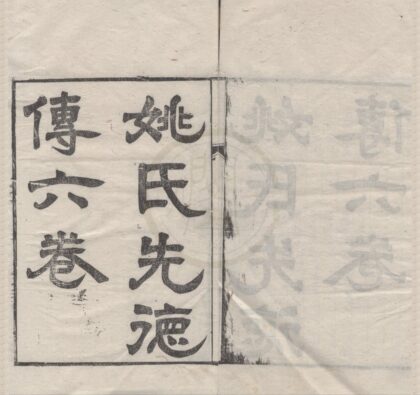 姚氏先德
傳六卷